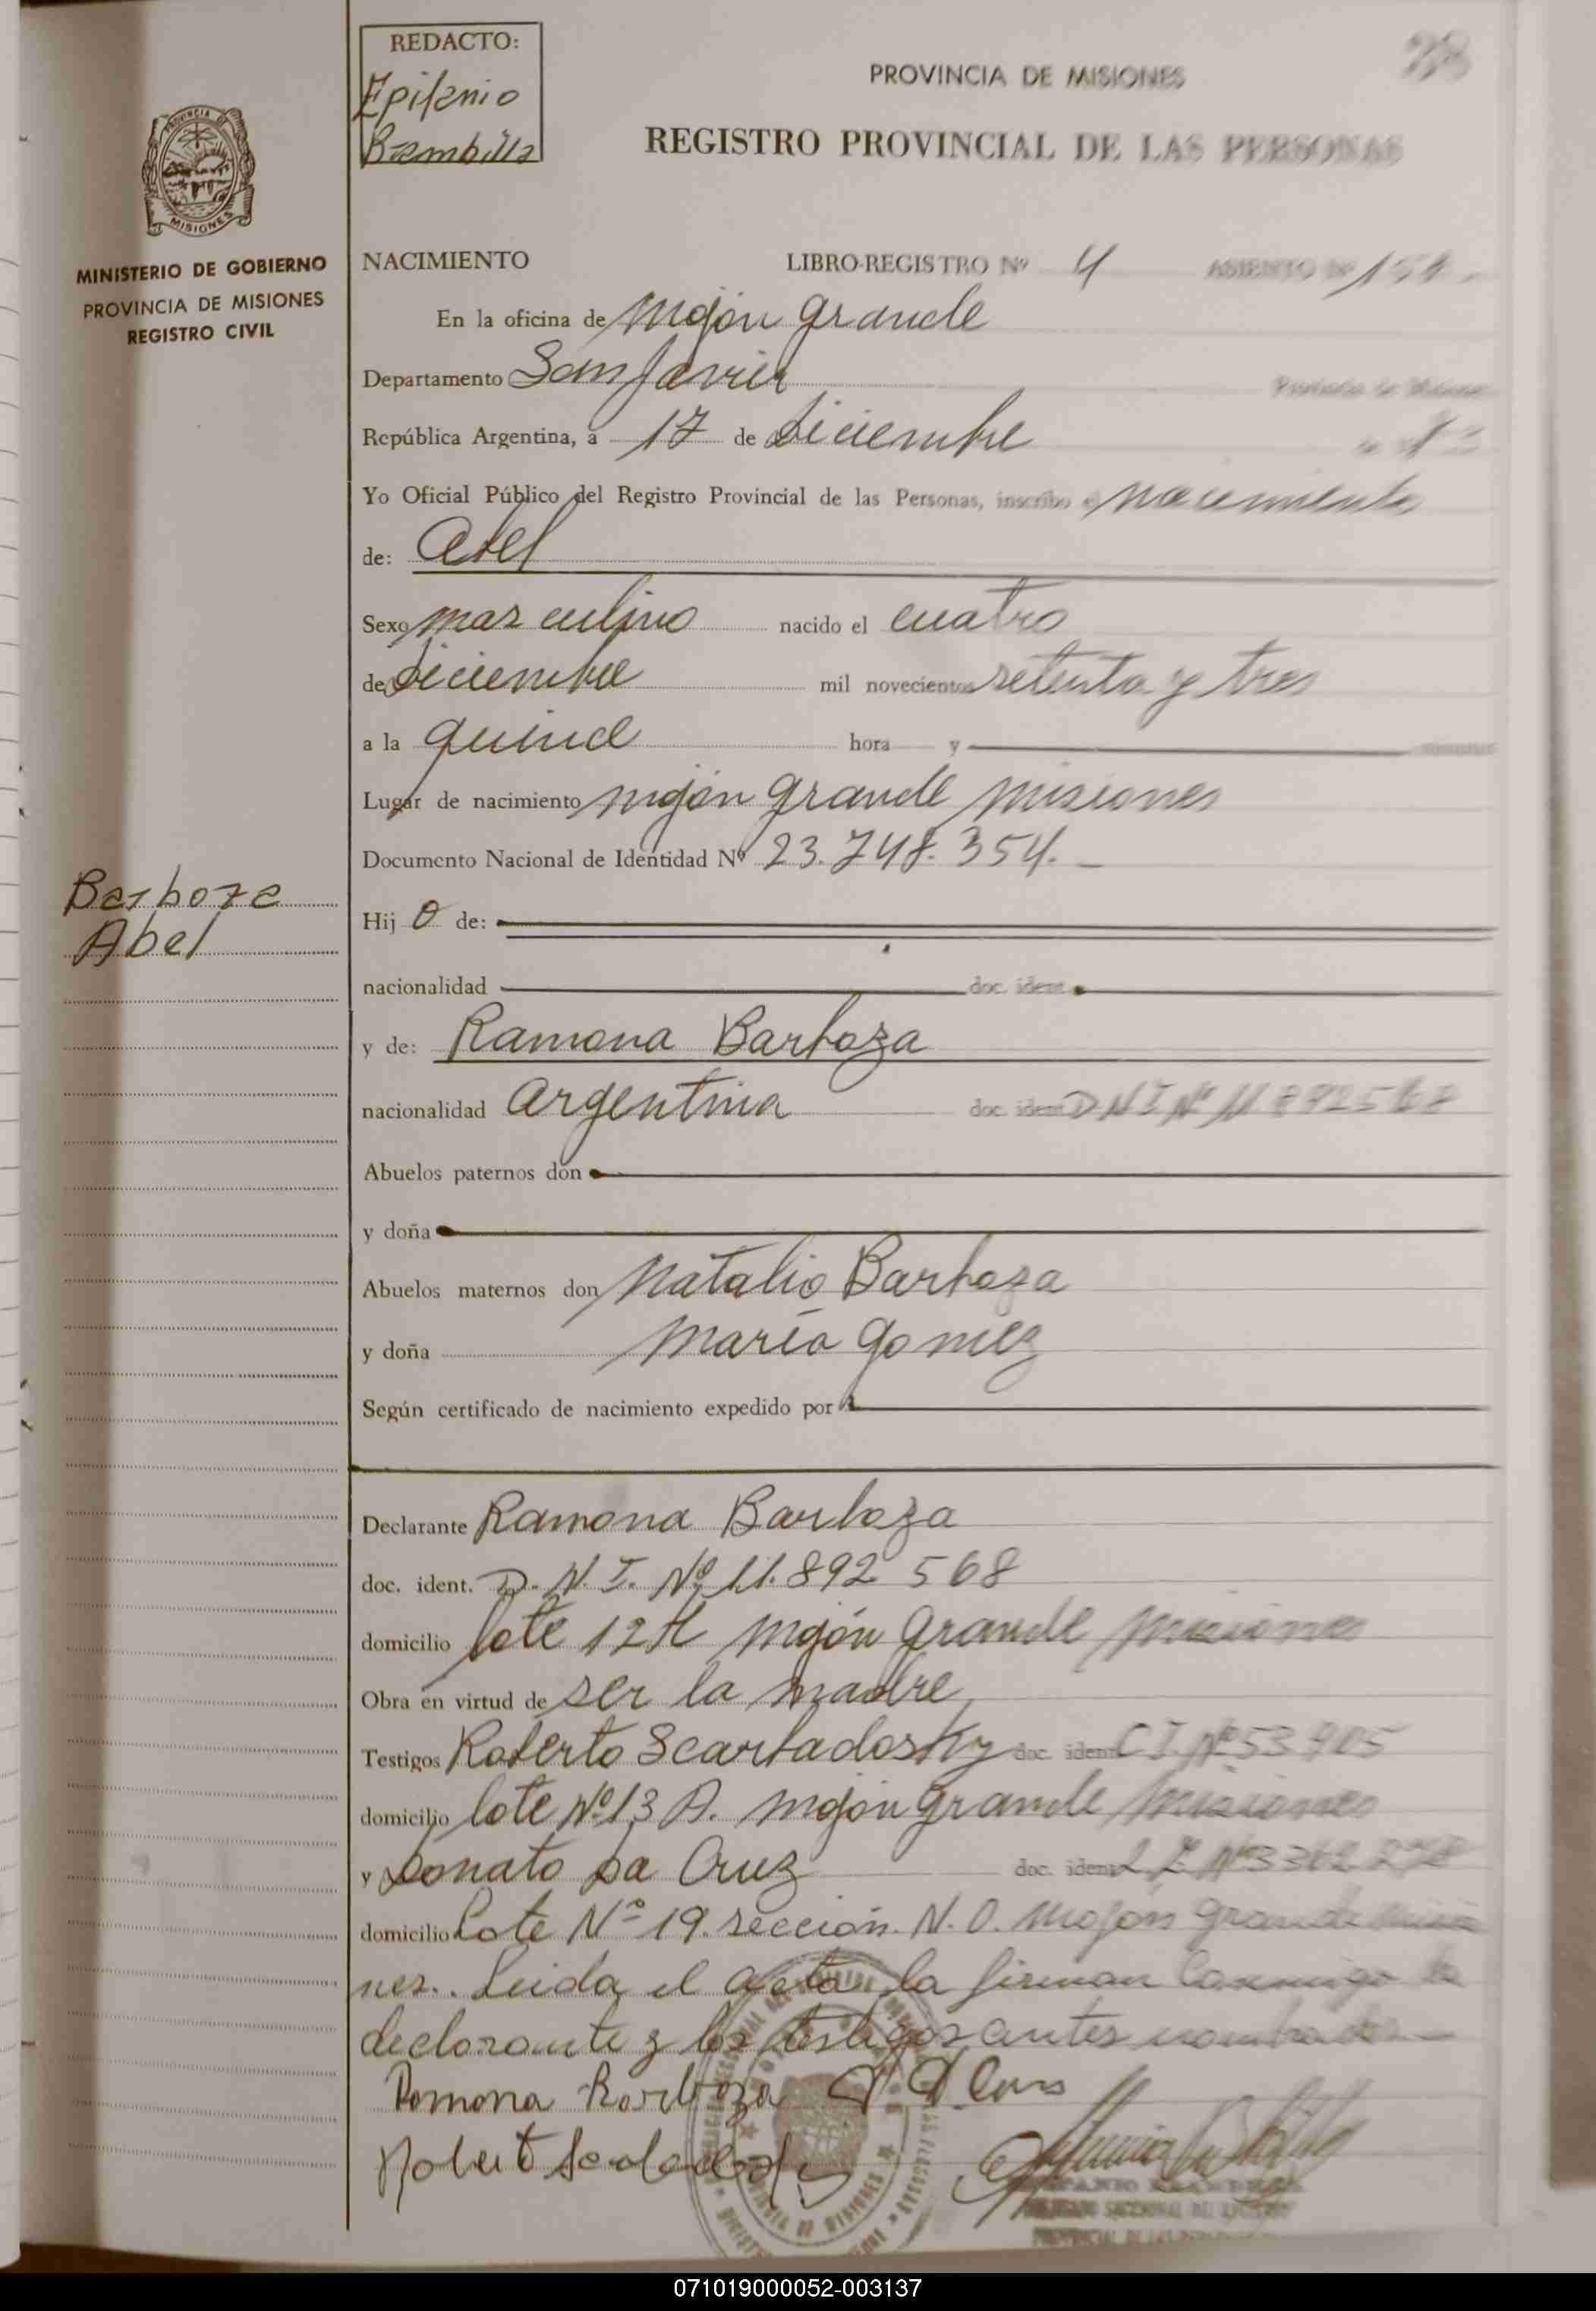 REDACTO:
Epifanio
Brambilla
38
PROVINCIA DE MISIONES
REGISTRO PROVINCIAL DE LAS PERSONAS
PROVINCIA DE
MISIONES
MINISTERIO DE GOBIERNO
PROVINCIA DE MISIONES
REGISTRO CIVIL
NACIMIENTO LIBRO-REGISTRO Nº 4 ASIENTO Nº
En la oficina de Mojón Grande
Departamento San Javier Provincia de Misiones
República Argentina, a 17 de Diciembre
Yo Oficial Público del Registro Provincial de las Personas, inscribo el nacimiento
de: Abel
Sexo masculino nacido el cuatro
de Diciembre mil novecientos setenta y tres
a la quince hora y minutos
Lugar de nacimiento Mojón Grande Misiones
Documento Nacional de Identidad Nº 23.748.354.
Barboza
Abel
Hij o de:
nacionalidad doc. ident.
y de: Ramona Barboza
nacionalidad Argentina doc. ident. DNI Nº 11892568
Abuelos paternos don
y doña
Abuelos maternos don Natalio Barboza
y doña María Gomez
Según certificado de nacimiento expedido por
Declarante Ramona Barboza
doc. ident. D.N.I. Nº 11.892568
domicilio lote 12 Mojón Grande Misiones
Obra en virtud de ser la madre
Testigos Roberto Scarbadosky doc. ident. C I. Nº 53905
domicilio lote Nº 13 A. Mojón Grande Misiones
y Donato Da Cruz doc. ident. Nº 3362278
domicilio Lote Nº 19. sección. N. O. Mojón Grande Misio
nes.. Leida el acta, la firman conmigo la
declarante y los testigos antes nombrados
Ramona Barboza D. D Cruz
071019000052-003137